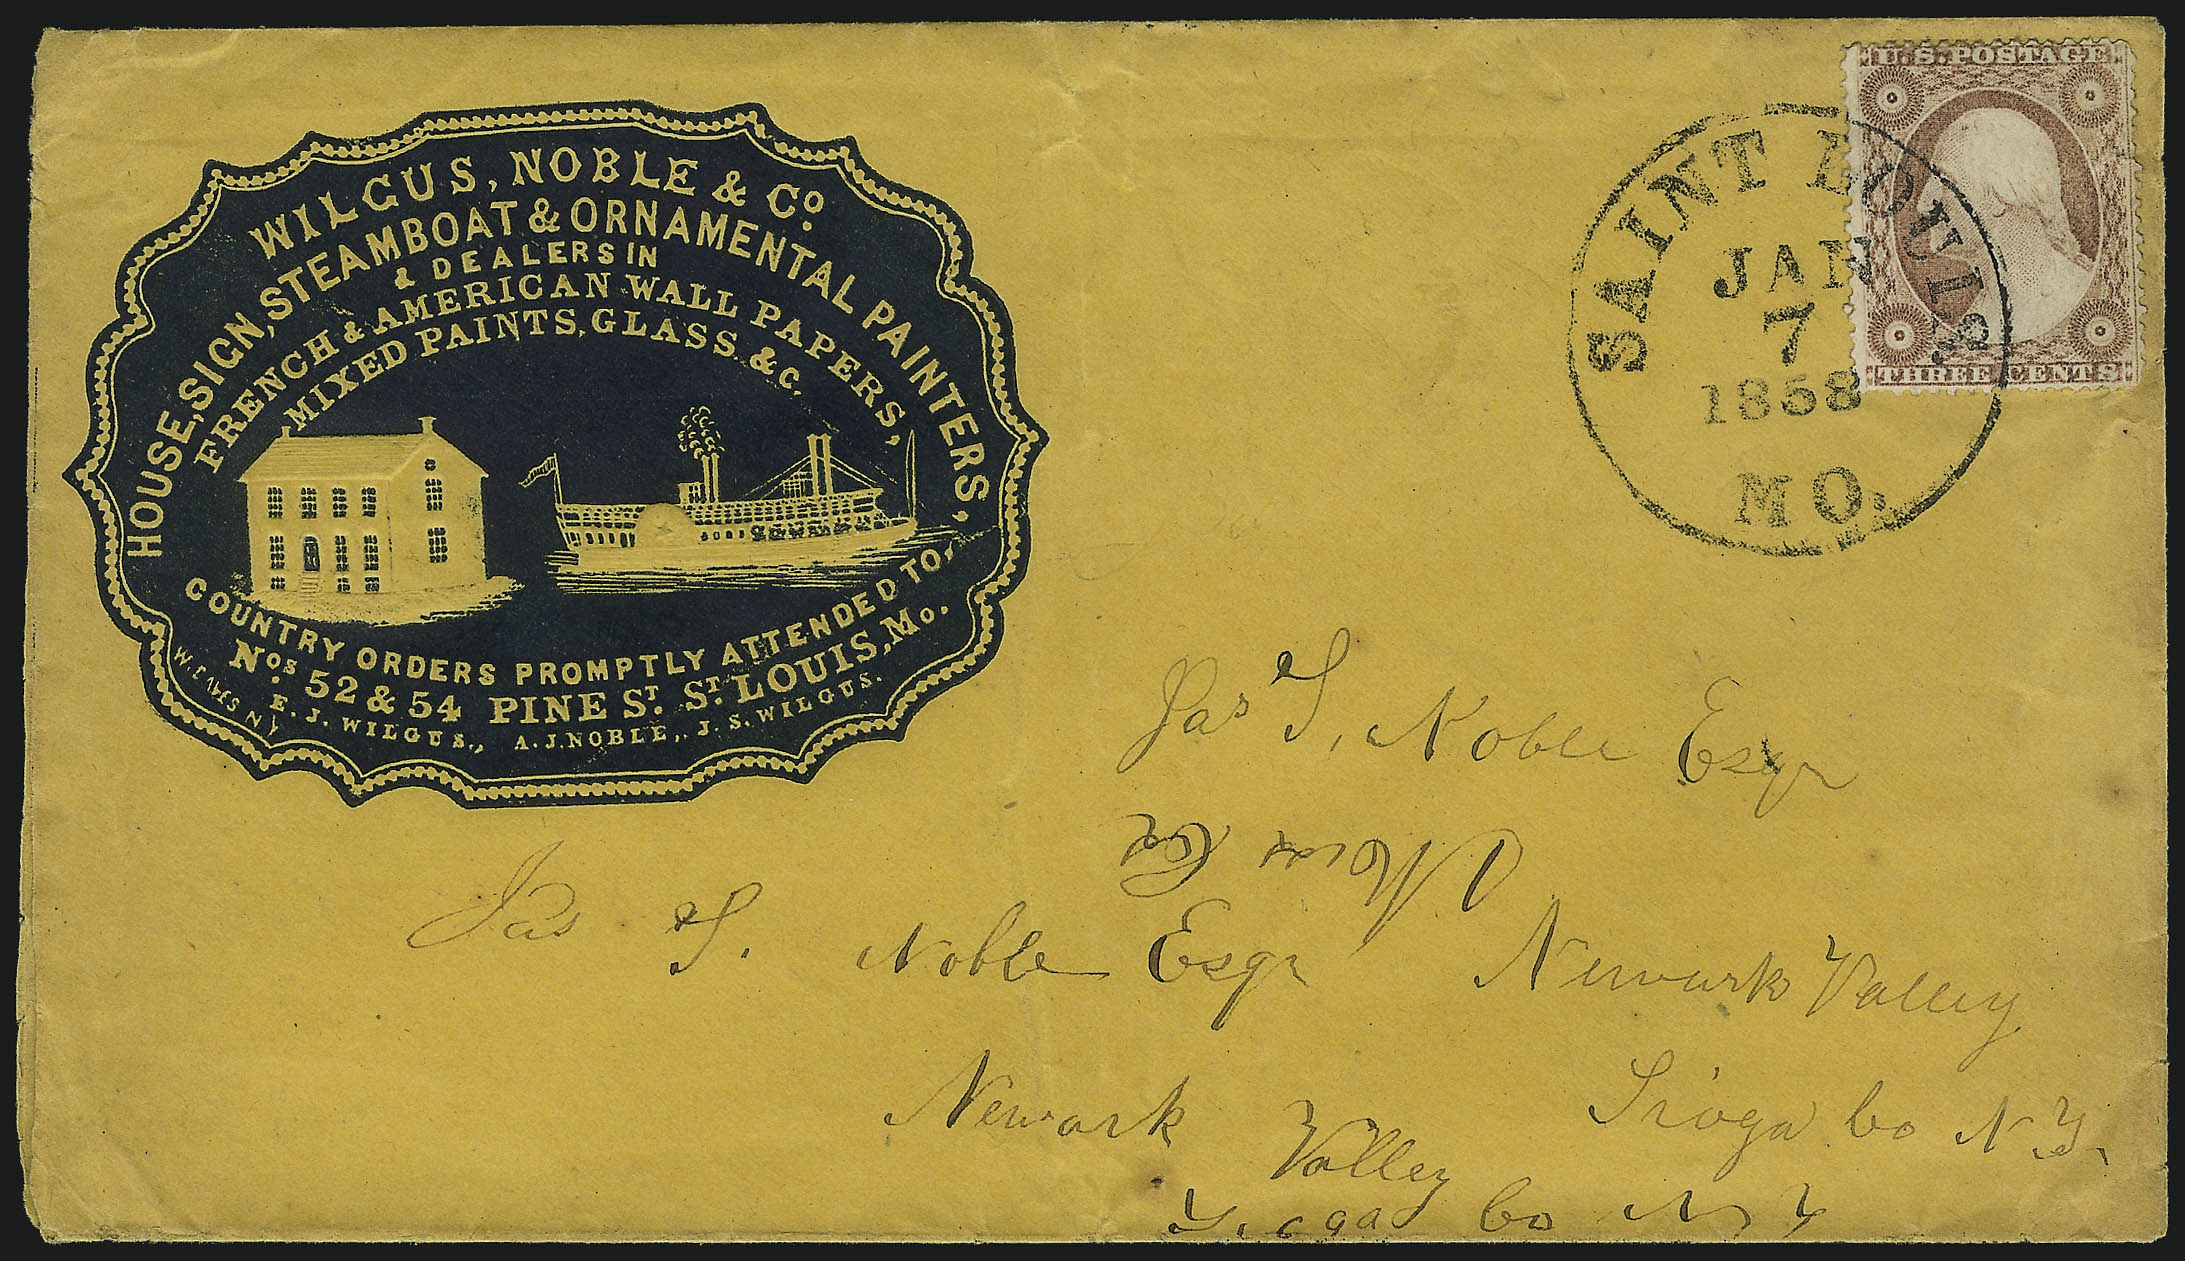 WILGUS, NOBLE & Co
HOUSE, SIGN, STEAMBOAT & ORNAMENTAL PAINTERS,
& DEALERS IN
FRENCH & AMERICAN WALL PAPERS,
MIXED PAINTS, GLASS &c.
COUNTRY ORDERS PROMPTLY ATTENDED TO,
Nos 52 & 54 PINE ST. ST LOUIS, Mo.
E. J. WILGUS., A. J. NOBLE,. J. S. WILGUS.
W. EAVES N Y
U.S. POSTAGE
THREE CENTS
SAINT LOUIS
JAN
7
1858
MO.
Jas S, Noble Esqr
Jas S. Noble Esqr
Newark Valley
Tioga Co N. Y.
Newark Valley
Tioga Co N Y